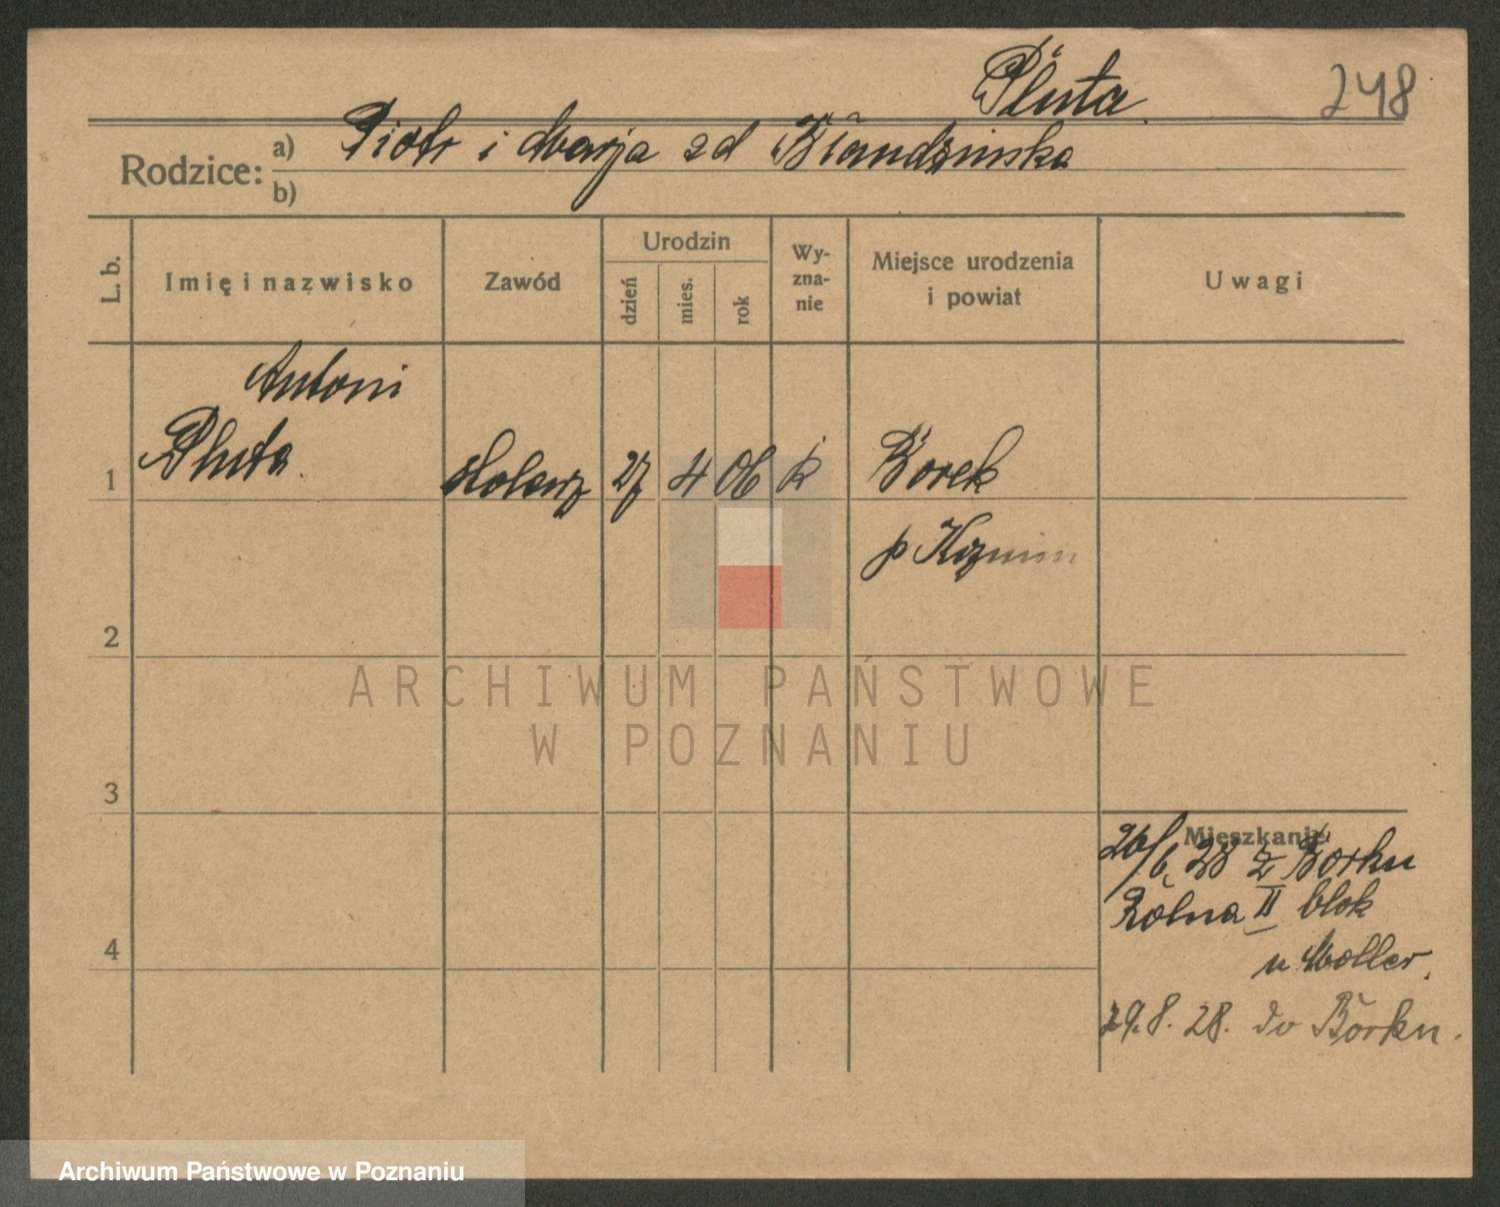 Pluta
248
Rodzice: a) Piotr i Marja zd Blandzinska
b)
L. b.
Imię i nazwisko
Zawód
Urodzin
dzień
mies.
rok
Wy-
zna-
nie
Miejsce urodzenia
i powiat
Uwagi
Antoni
1 Pluta stolarz 27 4 06 k Borek
p Kozmin
2
3
4
Mieszkanie
26/6 28 z Borku
Rolna II blok
u Moller.
29.8.28. do Borku.
ARCHIWUM PAŃSTWOWE
W POZNANIU
Archiwum Państwowe w Poznaniu